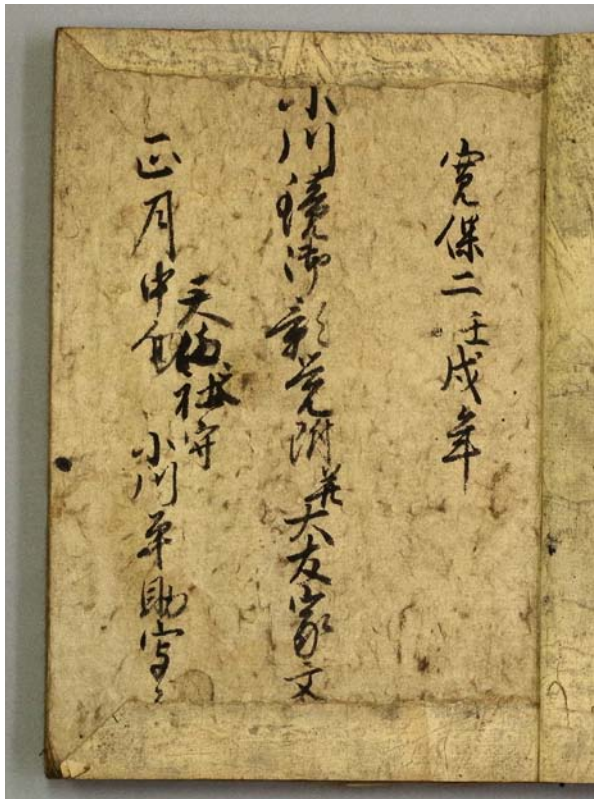 寛保二壬戌年
小川鏡御影覚附并大友家文
正月中旬
天満社守
小川平助写之